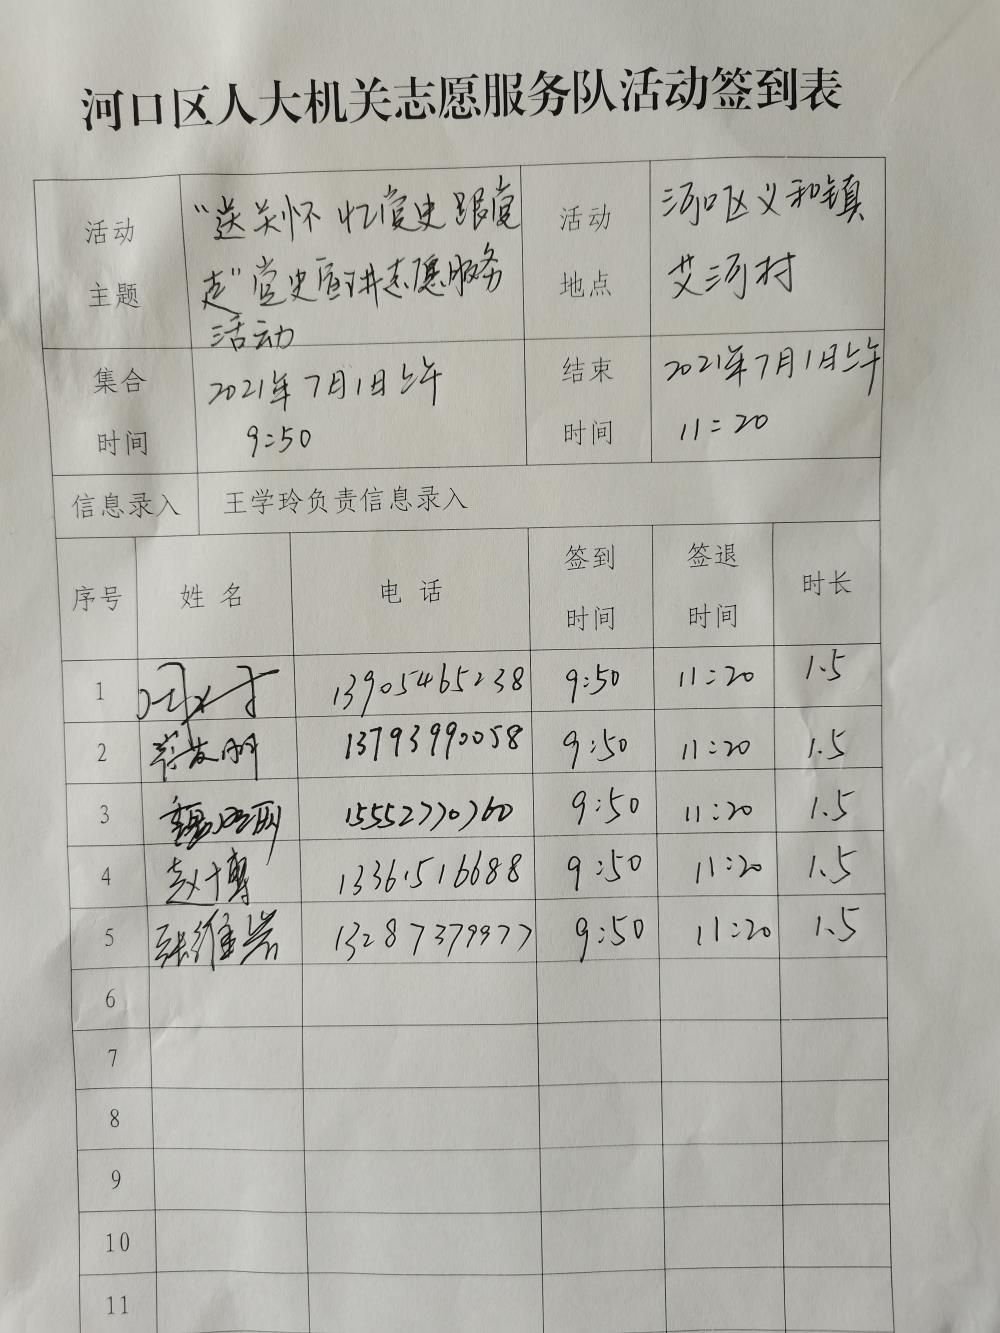 河口区人大机关志愿服务队活动签到表
活动 主题
"送关怀 忆党史 跟党
走"党史宣讲志愿服务
活动
活动 地点
河口区义和镇
艾河村
集合 时间
2021年7月1日上午
9:50
结束 时间
2021年7月1日上午
11:20
信息录入 王学玲负责信息录入
序号 姓名 电话 签到时间 签退时间 时长
1 13905465238 9:50 11:20 1.5
2 13793990058 9:50 11:20 1.5
3 15552770760 9:50 11:20 1.5
4 赵博 13361516688 9:50 11:20 1.5
5 张维岩 13287379977 9:50 11:20 1.5
6
7
8
9
10
11